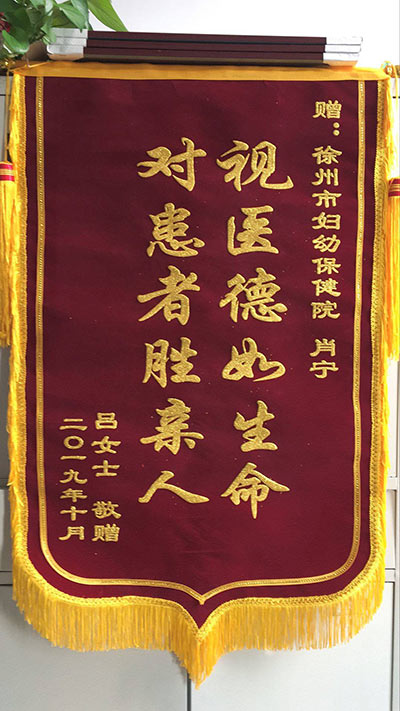 赠：徐州市妇幼保健院 肖宁
视医德如生命
对患者胜亲人
吕女士 敬赠
二〇一九年十月